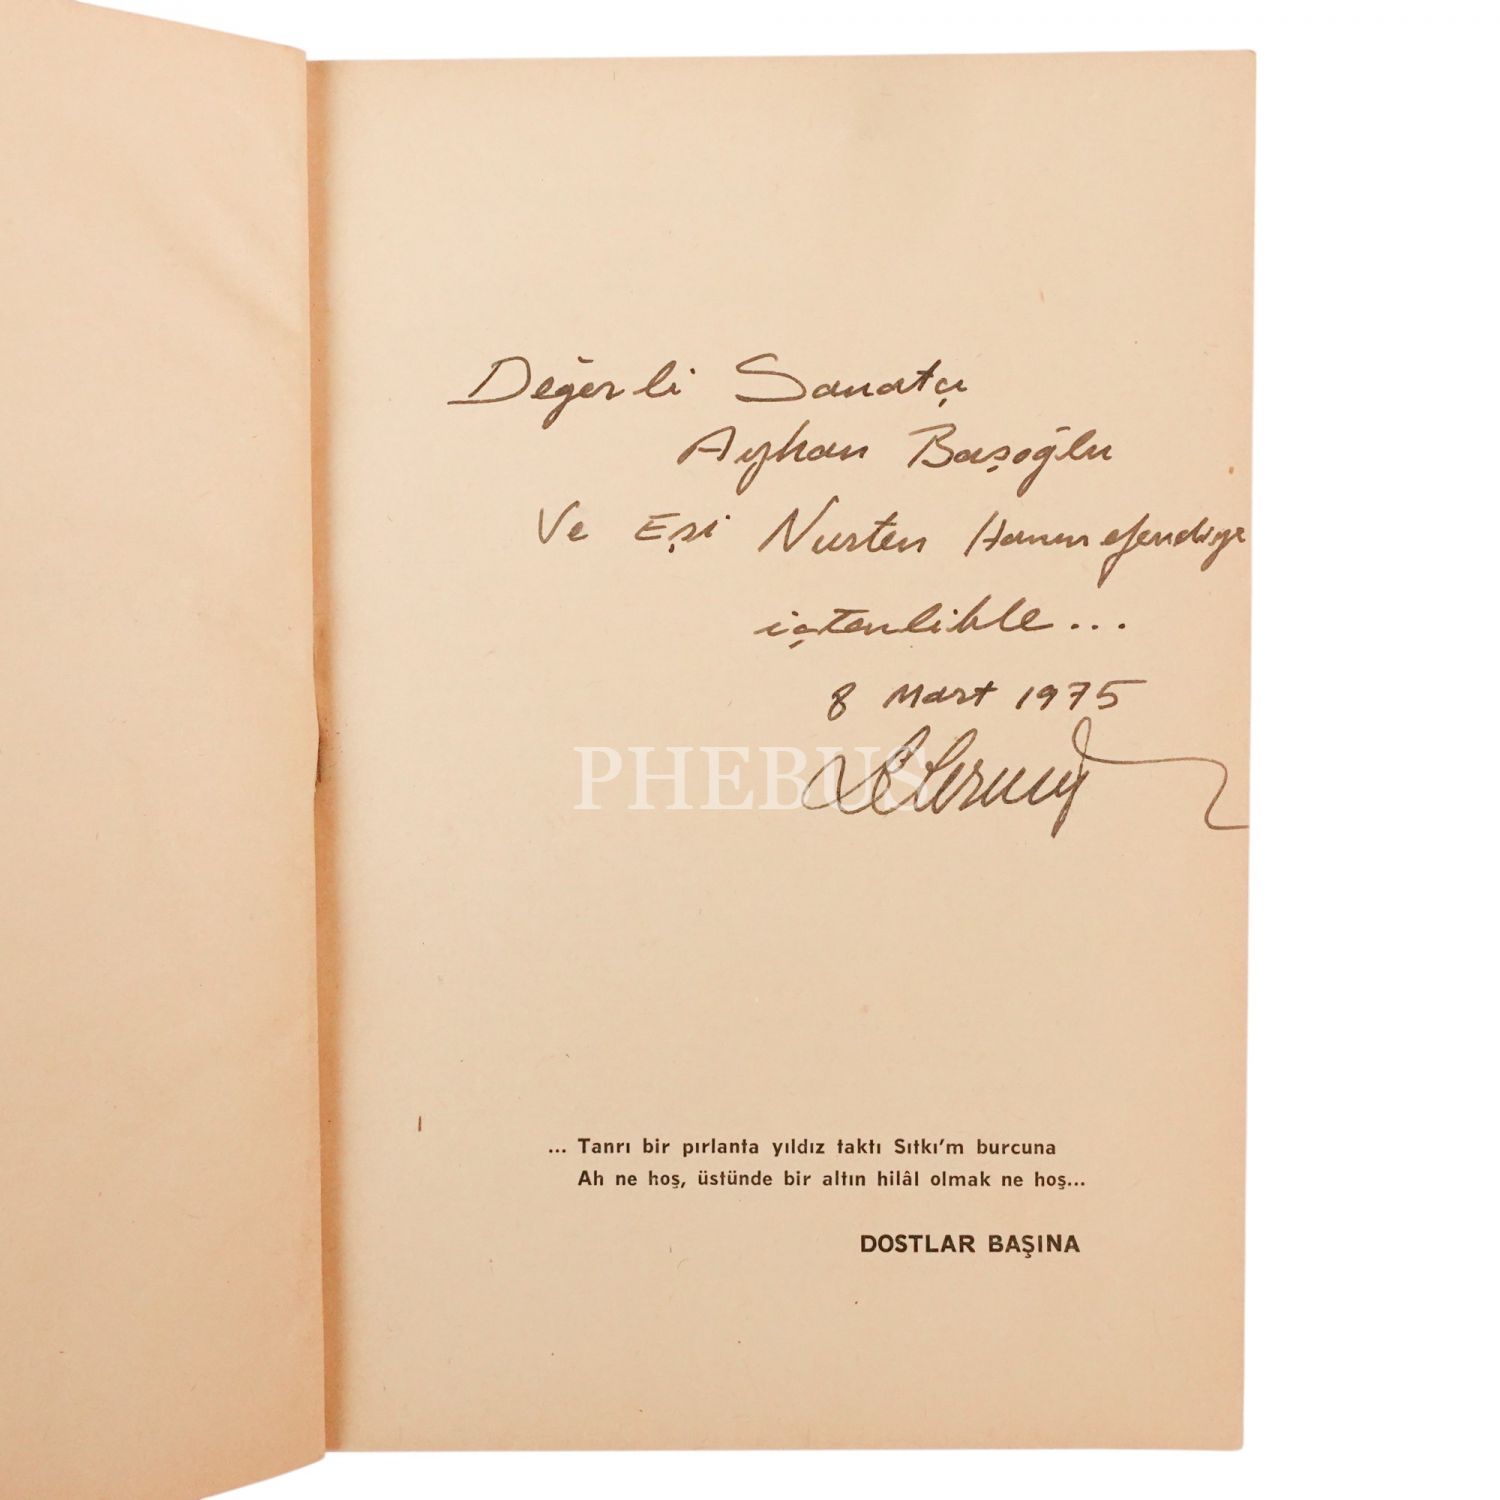 Değerli Sanatçı
Ayhan Başoğlu
Ve Eşi Nurten Hanımefendiye
içtenlikle...
8 Mart 1975
PHEBUS
... Tanrı bir pırlanta yıldız taktı Sıtkı'm burcuna
Ah ne hoş, üstünde bir altın hilâl olmak ne hoş...
DOSTLAR BAŞINA